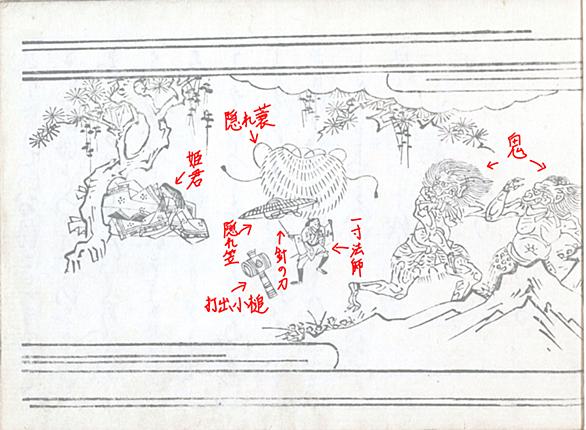 鬼
隠れ蓑
姫君
一寸法師
針の刀
隠れ笠
打出小槌